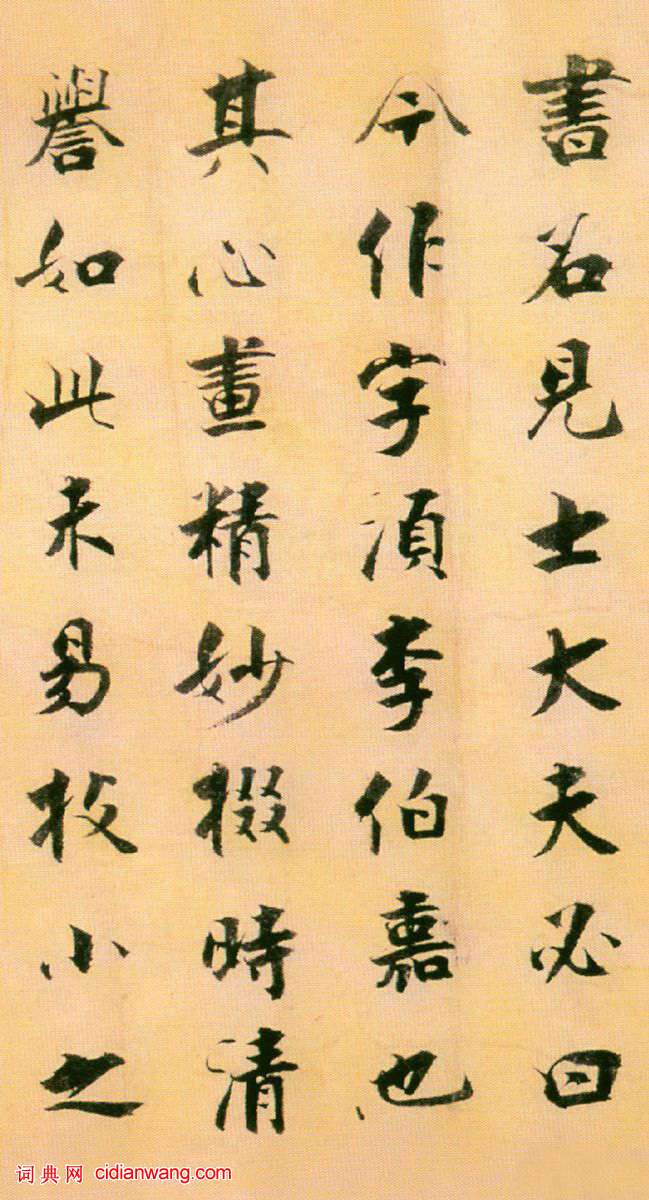 書名見士大夫必曰
今作字須李伯嘉也
其心畫精妙掇時清
譽如此未易技小之
词典网 cidianwang.com